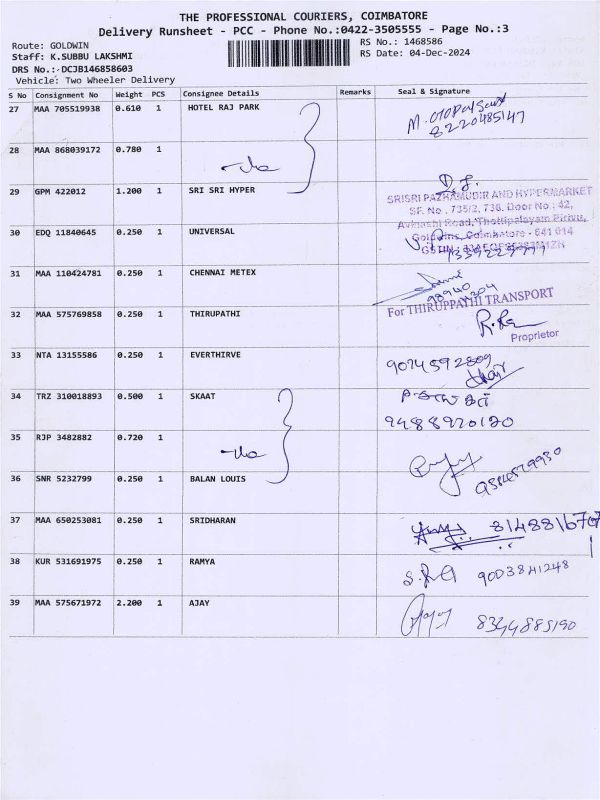 THE PROFESSIONAL COURIERS, COIMBATORE
Delivery Runsheet - PCC - Phone No.:0422-3505555 - Page No.:3
Route: GOLDWIN
RS No.: 1468586
Staff: K.SUBBU LAKSHMI
RS Date: 04-Dec-2024
DRS No.: DCJB146858603
Vehicle: Two Wheeler Delivery
S No Consignment No Weight PCS Consignee Details Remarks Seal & Signature
27 MAA 705519938 0.610 1 HOTEL RAJ PARK
8220485147
28 MAA 868039172 0.780 1
29 GPM 422012 1.200 1 SRI SRI HYPER
SRISRI PAZHAMUDIR AND HYPERMARKET
SF. No . 735/2, 736, Door No : 42,
Avinashi Road, Thottipalayam Pirivu,
Goldwins, Coimbatore - 641 014
30 EDQ 11840645 0.250 1 UNIVERSAL
31 MAA 110424781 0.250 1 CHENNAI METEX
32 MAA 575769858 0.250 1 THIRUPATHI
For THIRUPPATHI TRANSPORT
Proprietor
33 NTA 13155586 0.250 1 EVERTHIRVE
9074592809
34 TRZ 310018893 0.500 1 SKAAT
9488920120
35 RJP 3482882 0.720 1
36 SNR 5232799 0.250 1 BALAN LOUIS
37 MAA 650253081 0.250 1 SRIDHARAN
38 KUR 531691975 0.250 1 RAMYA
9003841248
39 MAA 575671972 2.200 1 AJAY
8344885190